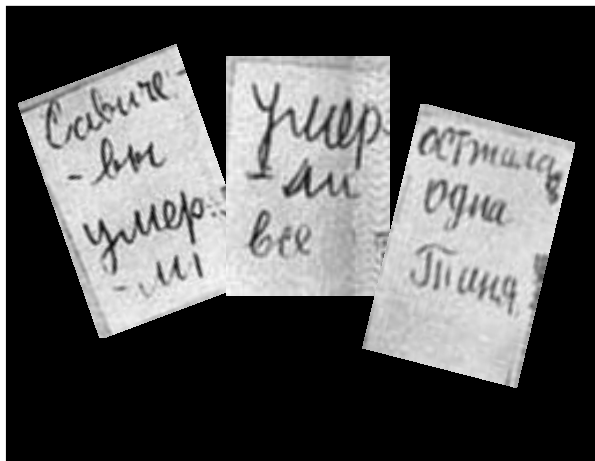 Савиче-
-вы
умер-
-ли
умер-
-ли
все
осталась
одна
Таня